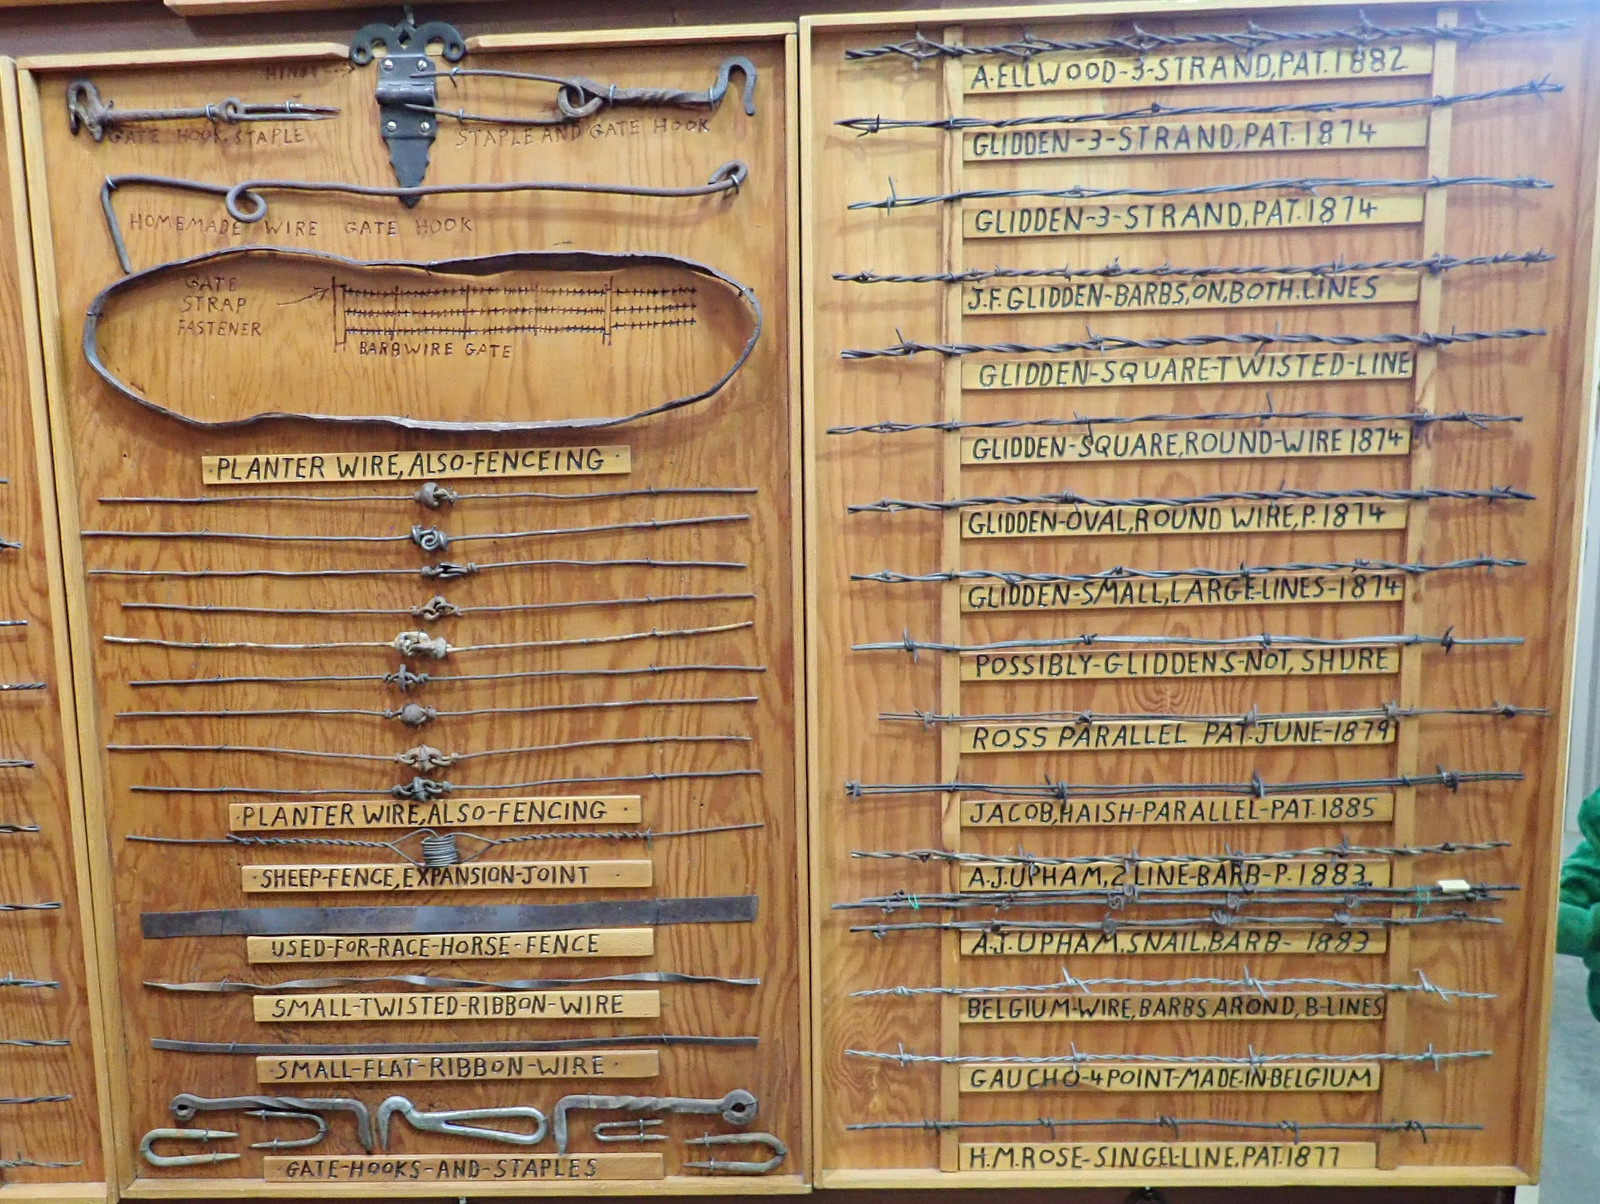 HINGE
GATE HOOK, STAPLE
STAPLE AND GATE HOOK
HOMEMADE WIRE GATE HOOK
GATE
STRAP
FASTENER
BARBWIRE GATE
·PLANTER WIRE, ALSO-FENCEING·
·PLANTER WIRE, ALSO-FENCING·
·SHEEP-FENCE, EXPANSION-JOINT
USED-FOR-RACE-HORSE-FENCE
SMALL-TWISTED-RIBBON-WIRE
·SMALL-FLAT-RIBBON-WIRE·
GATE-HOOKS-AND-STAPLES
A.ELLWOOD-3-STRAND, PAT. 1882
GLIDDEN-3-STRAND, PAT. 1874
GLIDDEN-3-STRAND, PAT. 1874
J.F. GLIDDEN-BARBS, ON, BOTH. LINES
GLIDDEN-SQUARE-TWISTED-LINE
GLIDDEN-SQUARE, ROUND-WIRE 1874
GLIDDEN-OVAL, ROUND WIRE, P. 1874
GLIDDEN-SMALL, LARGE-LINES-1874
POSSIBLY-GLIDDENS-NOT, SHURE
ROSS PARALLEL PAT. JUNE-1879
JACOB, HAISH-PARALLEL-PAT. 1885
A.J. UPHAM, 2 LINE-BARB-P. 1883.
A.J. UPHAM, SNAIL, BARB- 1883
BELGIUM-WIRE, BARBS AROND, B-LINES
GAUCHO-4 POINT-MADE-IN-BELGIUM
H.M. ROSE-SINGEL-LINE, PAT. 1877